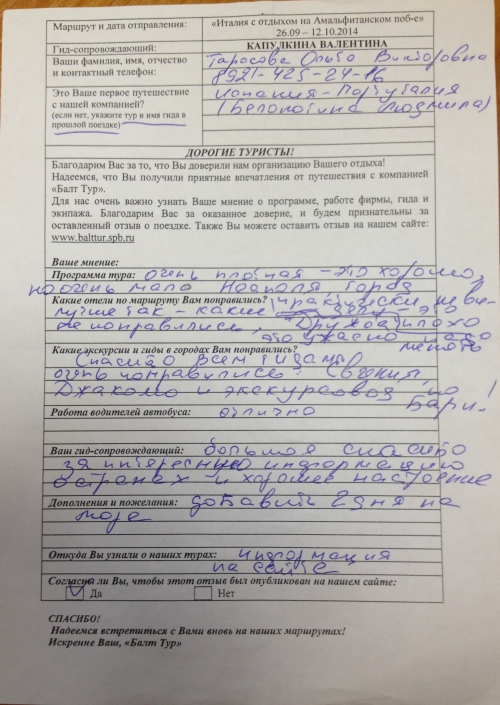 Маршрут и дата отправления:
«Италия с отдыхом на Амальфитанском поб-е»
26.09 – 12.10.2014
Гид-сопровождающий:
КАПУЛКИНА ВАЛЕНТИНА
Ваши фамилия, имя, отчество
и контактный телефон:
Тарасова Ольга Викторовна
8921-425-24-16
Это Ваше первое путешествие
с нашей компанией?
(если нет, укажите тур и имя гида в
прошлой поездке)
Испания-Португалия
(Белокопытина Людмила)
ДОРОГИЕ ТУРИСТЫ!
Благодарим Вас за то, что Вы доверили нам организацию Вашего отдыха!
Надеемся, что Вы получили приятные впечатления от путешествия с компанией
«Балт Тур».
Для нас очень важно узнать Ваше мнение о программе, работе фирмы, гида и
экипажа. Благодарим Вас за оказанное доверие, и будем признательны за
оставленный отзыв о поездке. Также Вы можете оставить отзыв на нашем сайте:
www.balttur.spb.ru
Ваше мнение:
Программа тура: очень плотная – это хорошо,
но очень мало Неаполя, город
Какие отели по маршруту Вам понравились? практически не ви-
лучше так – какие
не понравились, "Дружба" плохо
это ужасно надо
менять
Какие экскурсии и гиды в городах Вам понравились?
Спасибо всем гидам!
очень понравились Евгения,
Джакомо и экскурсовод по Бари!
Работа водителей автобуса: отлично
Ваш гид-сопровождающий: большое спасибо
за интересную информацию
о странах и хорошее настроение
Дополнения и пожелания: добавить 2 дня на
море
Откуда Вы узнали о наших турах: информация
на сайте
Согласны ли Вы, чтобы этот отзыв был опубликован на нашем сайте:
Да Нет
СПАСИБО!
Надеемся встретиться с Вами вновь на наших маршрутах!
Искренне Ваш, «Балт Тур»